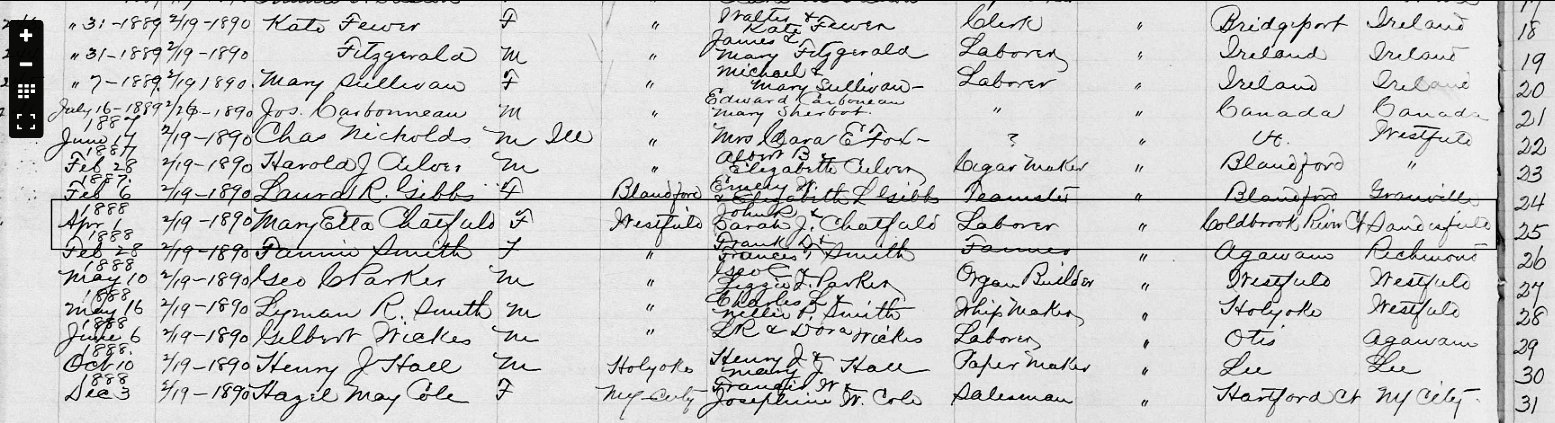 17
" 31-1889 2/19-1890 Kate Fewer F " Walter & Kate Fewer Clerk " Bridgeport Ireland 18
" 31-1889 2/19-1890 Fitzgerald M " James & Mary Fitzgerald Laborer " Ireland Ireland 19
" 7-1889 2/19 1890 Mary Sullivan F " Michael & Mary Sullivan Laborer " Ireland Ireland 20
July 16-1889 2/26-1890 Jos. Carbonneau M " Edward Carboneau Mary Sherbot " " Canada Canada 21
June 14 1887 2/19-1890 Chas Nicholds M Ill " Mrs Clara E Fox ? " Vt. Westfield 22
Feb 28 1887 2/19-1890 Harold J M " Albert B. Elizabeth Cigar Maker " Blandford " 23
Feb 6 1887 2/19-1890 Laura R. Gibbs F Blandford Emery W & Elizabeth L Gibbs Teamster " Blandford Granville 24
Apr 1 1888 2/19-1890 Mary Etta Chatfield F Westfield John R & Sarah J. Chatfield Laborer " Coldbrook River Ct Sandisfield 25
Feb 28 1888 2/19-1890 Fannie Smith F " Frank D & Frances, Smith Farmer " Agawam Richmond 26
May 10 1888 2/19-1890 Geo C Parker M " Geo C Lizzie J. Parker Organ Builder " Westfield Westfield 27
May 16 1888 2/19-1890 Lyman R. Smith M " Charles L & Nellie P. Smith Whip Maker " Holyoke Westfield 28
June 6 1888 2/19-1890 Gilbert Wickes M " L R & Dora Wickes Laborer " Otis Agawam 29
Oct 10 1888 2/19-1890 Henry J Hall M Holyoke Henry J & Mary Hall Paper Maker " Lee Lee 30
Dec 3 1888 2/19-1890 Hazil May Cole F NY City Francis W. Josephine W. Cole Salesman " Hartford Ct NY City 31